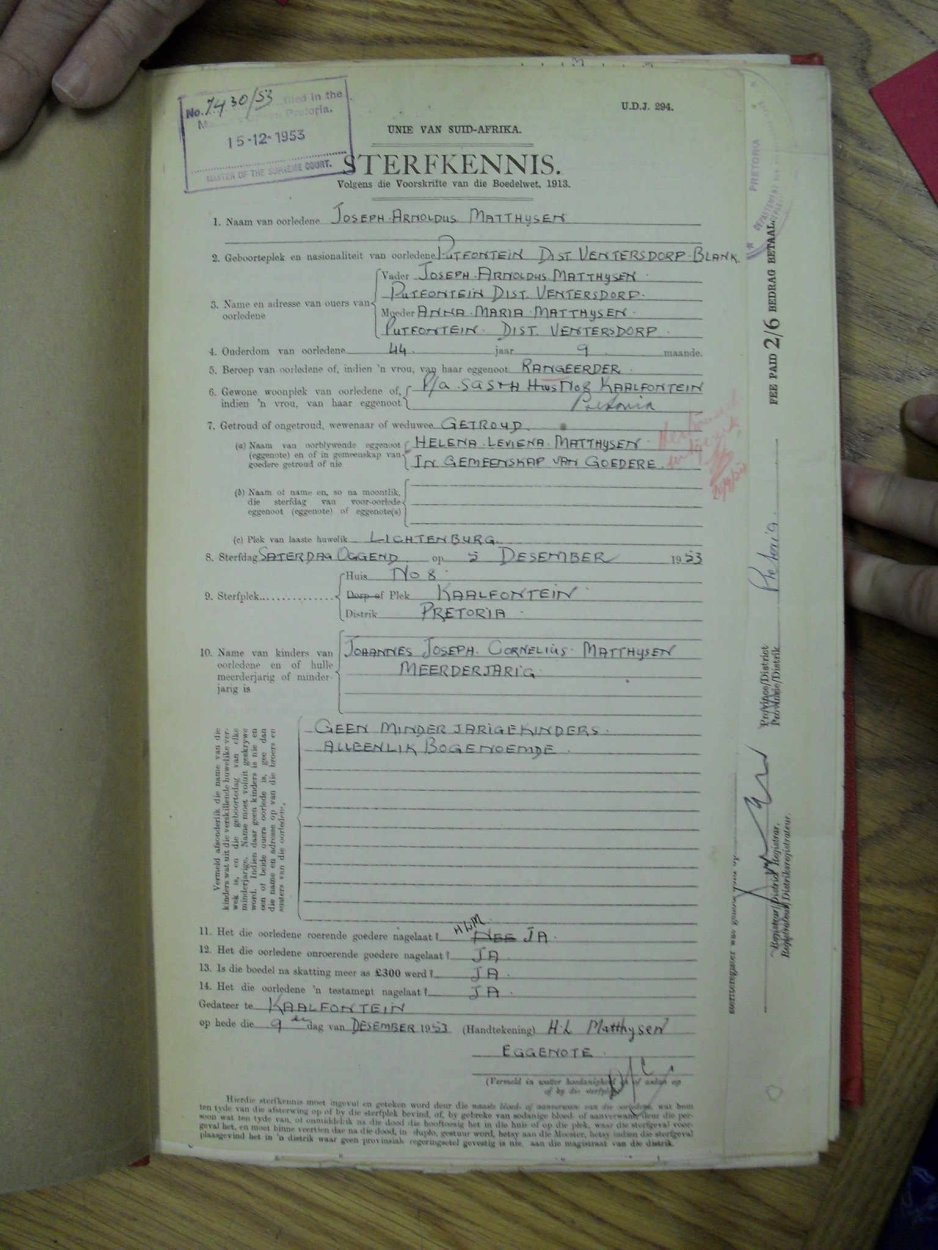 No. 7430/53 Filed in the
Pretoria.
15-12-1953
MASTER OF THE SUPREME COURT.
U.D.J. 294.
UNIE VAN SUID-AFRIKA.
STERFKENNIS.
Volgens die Voorskrifte van die Boedelwet, 1913.
1. Naam van oorledene JOSEPH ARNOLDUS MATTHYSEN
2. Geboorteplek en nasionaliteit van oorledene PUTFONTEIN DIST. VENTERSDORP BLANK.
3. Name en adresse van ouers van oorledene
Vader JOSEPH ARNOLDUS MATTHYSEN
PUTFONTEIN DIST. VENTERSDORP.
Moeder ANNA MARIA MATTHYSEN
PUTFONTEIN DIST. VENTERSDORP
4. Ouderdom van oorledene 44 jaar 9 maande.
5. Beroep van oorledene of, indien 'n vrou, van haar eggenoot RANGEERDER
6. Gewone woonplek van oorledene of, P/a SAS&H HUIS No 8 KAALFONTEIN
indien 'n vrou, van haar eggenoot Pretoria
7. Getroud of ongetroud, wewenaar of weduwee GETROUD
(a) Naam van oorblywende eggenoot HELENA LEVIENA MATTHYSEN
(eggenote) en of in gemeenskap van IN GEMEENSKAP VAN GOEDERE
goedere getroud of nie
(b) Naam of name en, so na moontlik,
die sterfdag van voor-oorlede
eggenoot (eggenote) of eggenote(s)
(c) Plek van laaste huwelik LICHTENBURG
8. Sterfdag SATERDAG OGGEND op 5 DESEMBER 1953
9. Sterfplek
Huis No 8
Dorp of Plek KAALFONTEIN
Distrik PRETORIA
10. Name van kinders van JOHANNES JOSEPH CORNELIUS MATTHYSEN
oorledene en of hulle MEERDERJARIG
meerderjarig of minder-
jarig is
GEEN MINDERJARIGE KINDERS
ALLEENLIK BOGENOEMDE
Vermeld afsonderlik die name van die
kinders wat uit die verskillende huwelike ver-
wek is, en die geboortedag van elke
minderjarige. Name moet voluit geskrywe
word. Indien daar geen kinders is nie en
een of beide ouers oorlede is, gee dan
die name en adresse op van die broers en
susters van die oorledene.
11. Het die oorledene roerende goedere nagelaat? HLM NEE JA
12. Het die oorledene onroerende goedere nagelaat? JA
13. Is die boedel na skatting meer as £300 werd? JA
14. Het die oorledene 'n testament nagelaat? JA
Gedateer te KAALFONTEIN
op hede die 9de dag van DESEMBER 1953 (Handtekening) H L Matthysen
EGGENOTE
(Vermeld in watter hoedanigheid
of by die sterfplek
Hierdie sterfkennis moet ingevul en geteken word deur die naaste bloed- of aanverwant van die oorledene, wat hom
ten tyde van die afsterwing op of by die sterfplek bevind, of, by gebreke van sodanige bloed- of aanverwant deur die per-
soon wat ten tyde van, of onmiddellik na die dood die hooftoesig het in die huis of op die plek, waar die sterfgeval voor-
geval het, en moet binne veertien dae na die dood, in duplo, gestuur word, hetsy aan die Meester, hetsy indien die sterfgeval
plaasgevind het in 'n distrik waar geen provinsiale regeringsetel gevestig is nie, aan die magistraat van die distrik.
PRETORIA
FEE PAID 2/6 BEDRAG BETAAL
Pretoria
Province/District
Provinsie/Distrik
Registrar/District Registrar.
Registrateur/Distriksregistrateur.